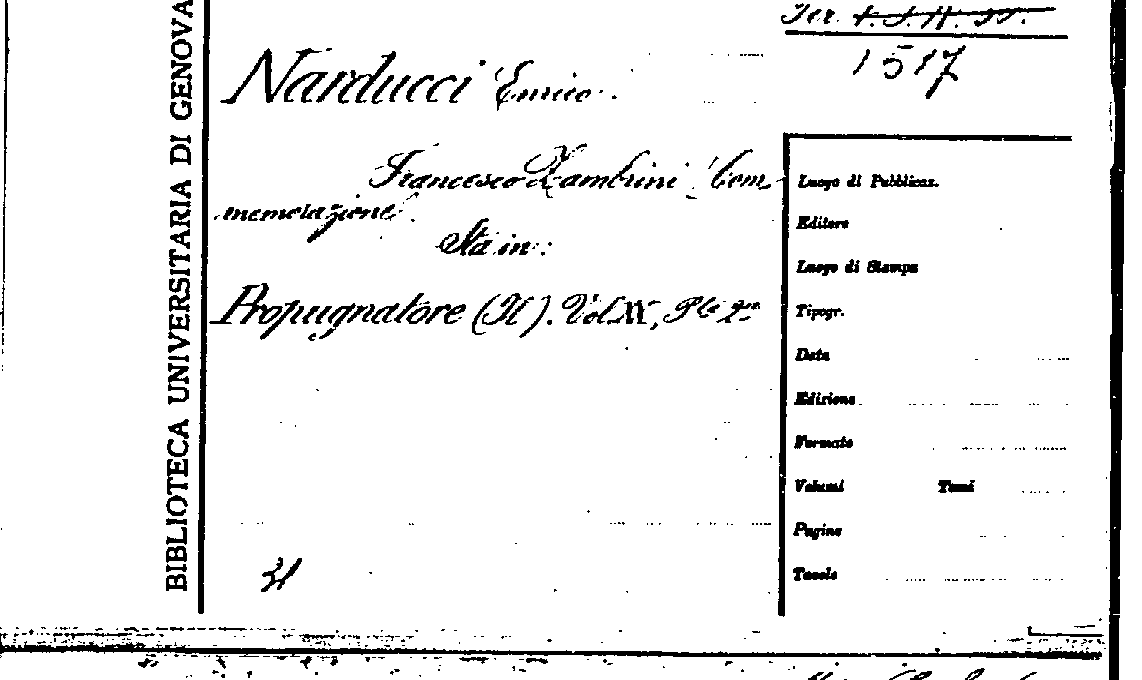 BIBLIOTECA UNIVERSITARIA DI GENOVA
Per.
1517
Narducci Enrico.
Francesco Zambrini. Com-
memorazione.
Sta in:
Propugnatore (Il). Vol. XX, Pte 2a
Luogo di Pubblicaz.
Editore
Luogo di Stampa
Tipogr.
Data
Edizione
Formato
Volumi Tomi
Pagine
Tavole